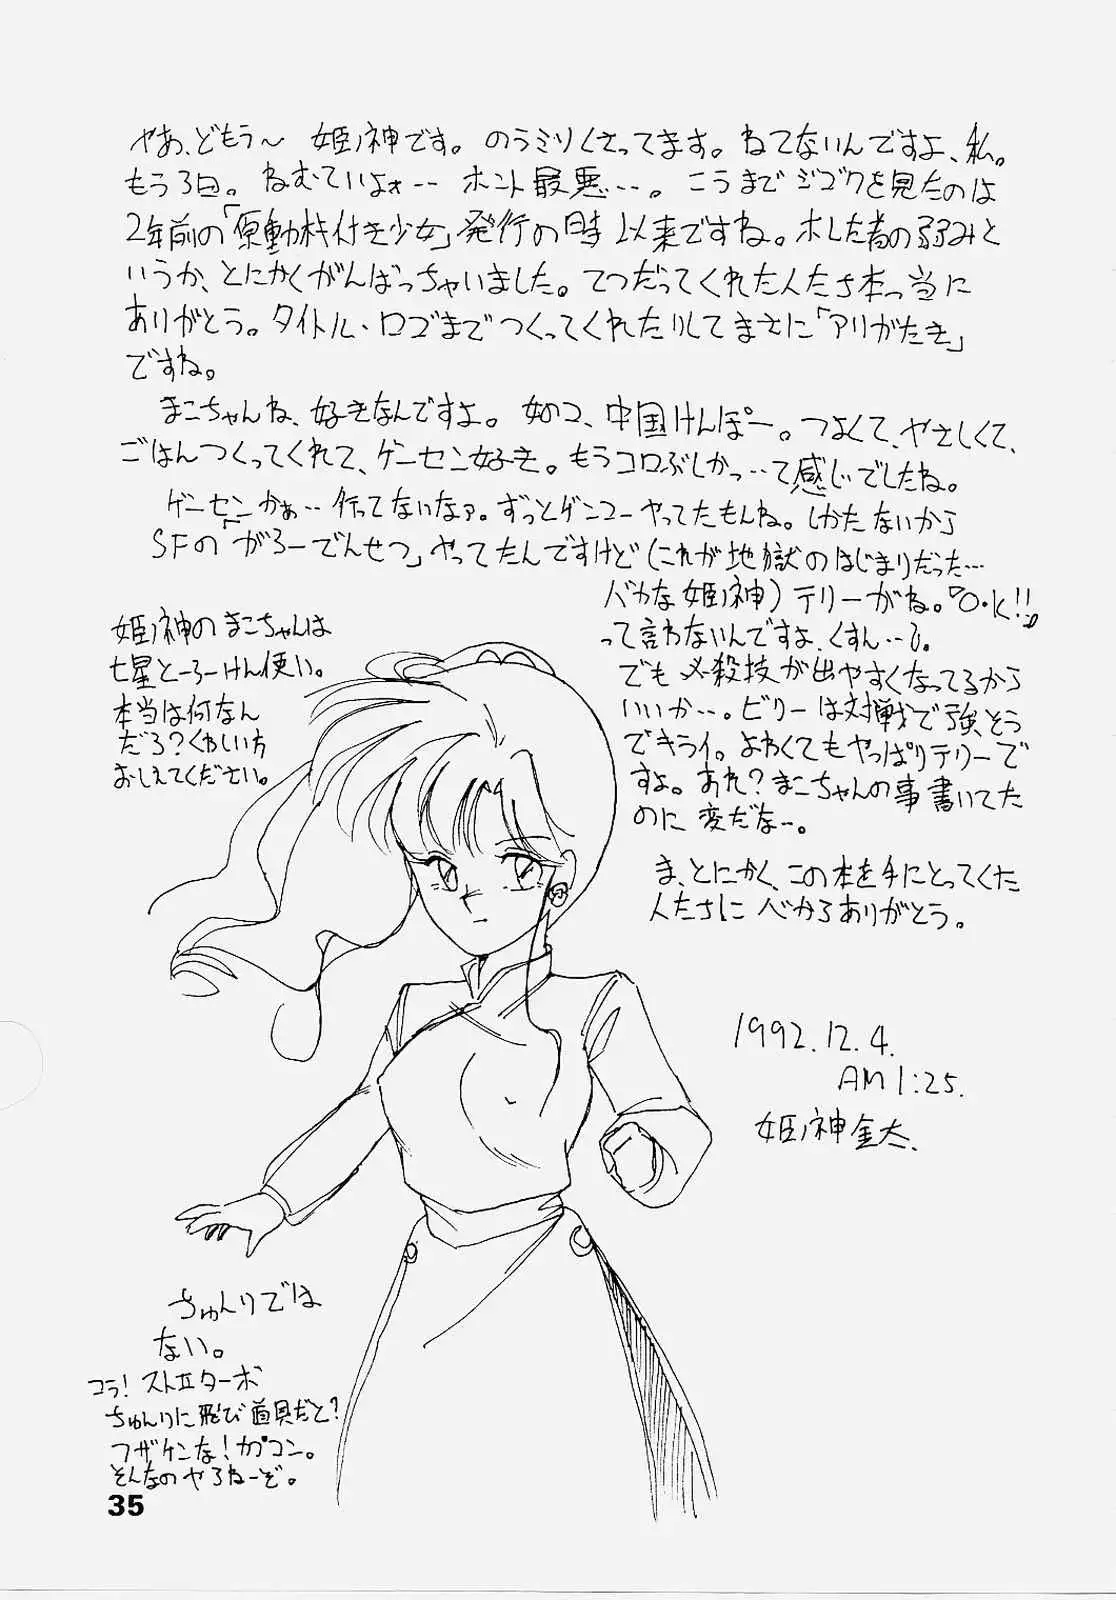 やあ、どもう〜 姫ノ神です。のうミソくさってます。ねてないんですよ、私。
もう3日。ねむてぃよォ‥‥ ホント最悪‥‥。こうまでジゴクを見たのは
2年前の「原動機付き少女」発行の時以来ですね。ホレた者の弱みと
いうか、とにかくがんばっちゃいました。てつだってくれた人たち本っ当に
ありがとう。タイトル・ロゴまでつくってくれたりしてまさに「アリがたき」
ですね。
まこちゃんね、好きなんですよ。女のコ、中国けんぽー。つよくて、やさしくて、
ごはんつくってくれて、ゲーセン好き。もうコロぶしかっ‥て感じでしたね。
ゲーセンかぁ‥‥行ってないなァ。ずっとゲンコーやってたもんね。しかたないから
SFの「がろーでんせつ」やってたんですけど(これが地獄のはじまりだった…
バカな姫ノ神)テリーがね。『O・K!!』
って言わないんですよ、くすん…。
でも必殺技が出やすくなってるから
いいか‥‥。ビリーは対戦で強そう
でキライ。よわくてもやっぱりテリーで
すよ。あれ?まこちゃんの事書いてた
のに変だなー。
ま、とにかく、この本を手にとってくた
人たちに 心からありがとう。
姫ノ神のまこちゃんは
七星とーろーけん使い。
本当は何なん
だろ?くわしい方
おしえてください。
1992.12.4.
AM1:25.
姫ノ神金太.
ちゅんりでは
ない。
コラ!ストIIターボ
ちゅんりに飛び道具だと?
フザケンな!カプコン。
そんなのやろねーぞ。
35